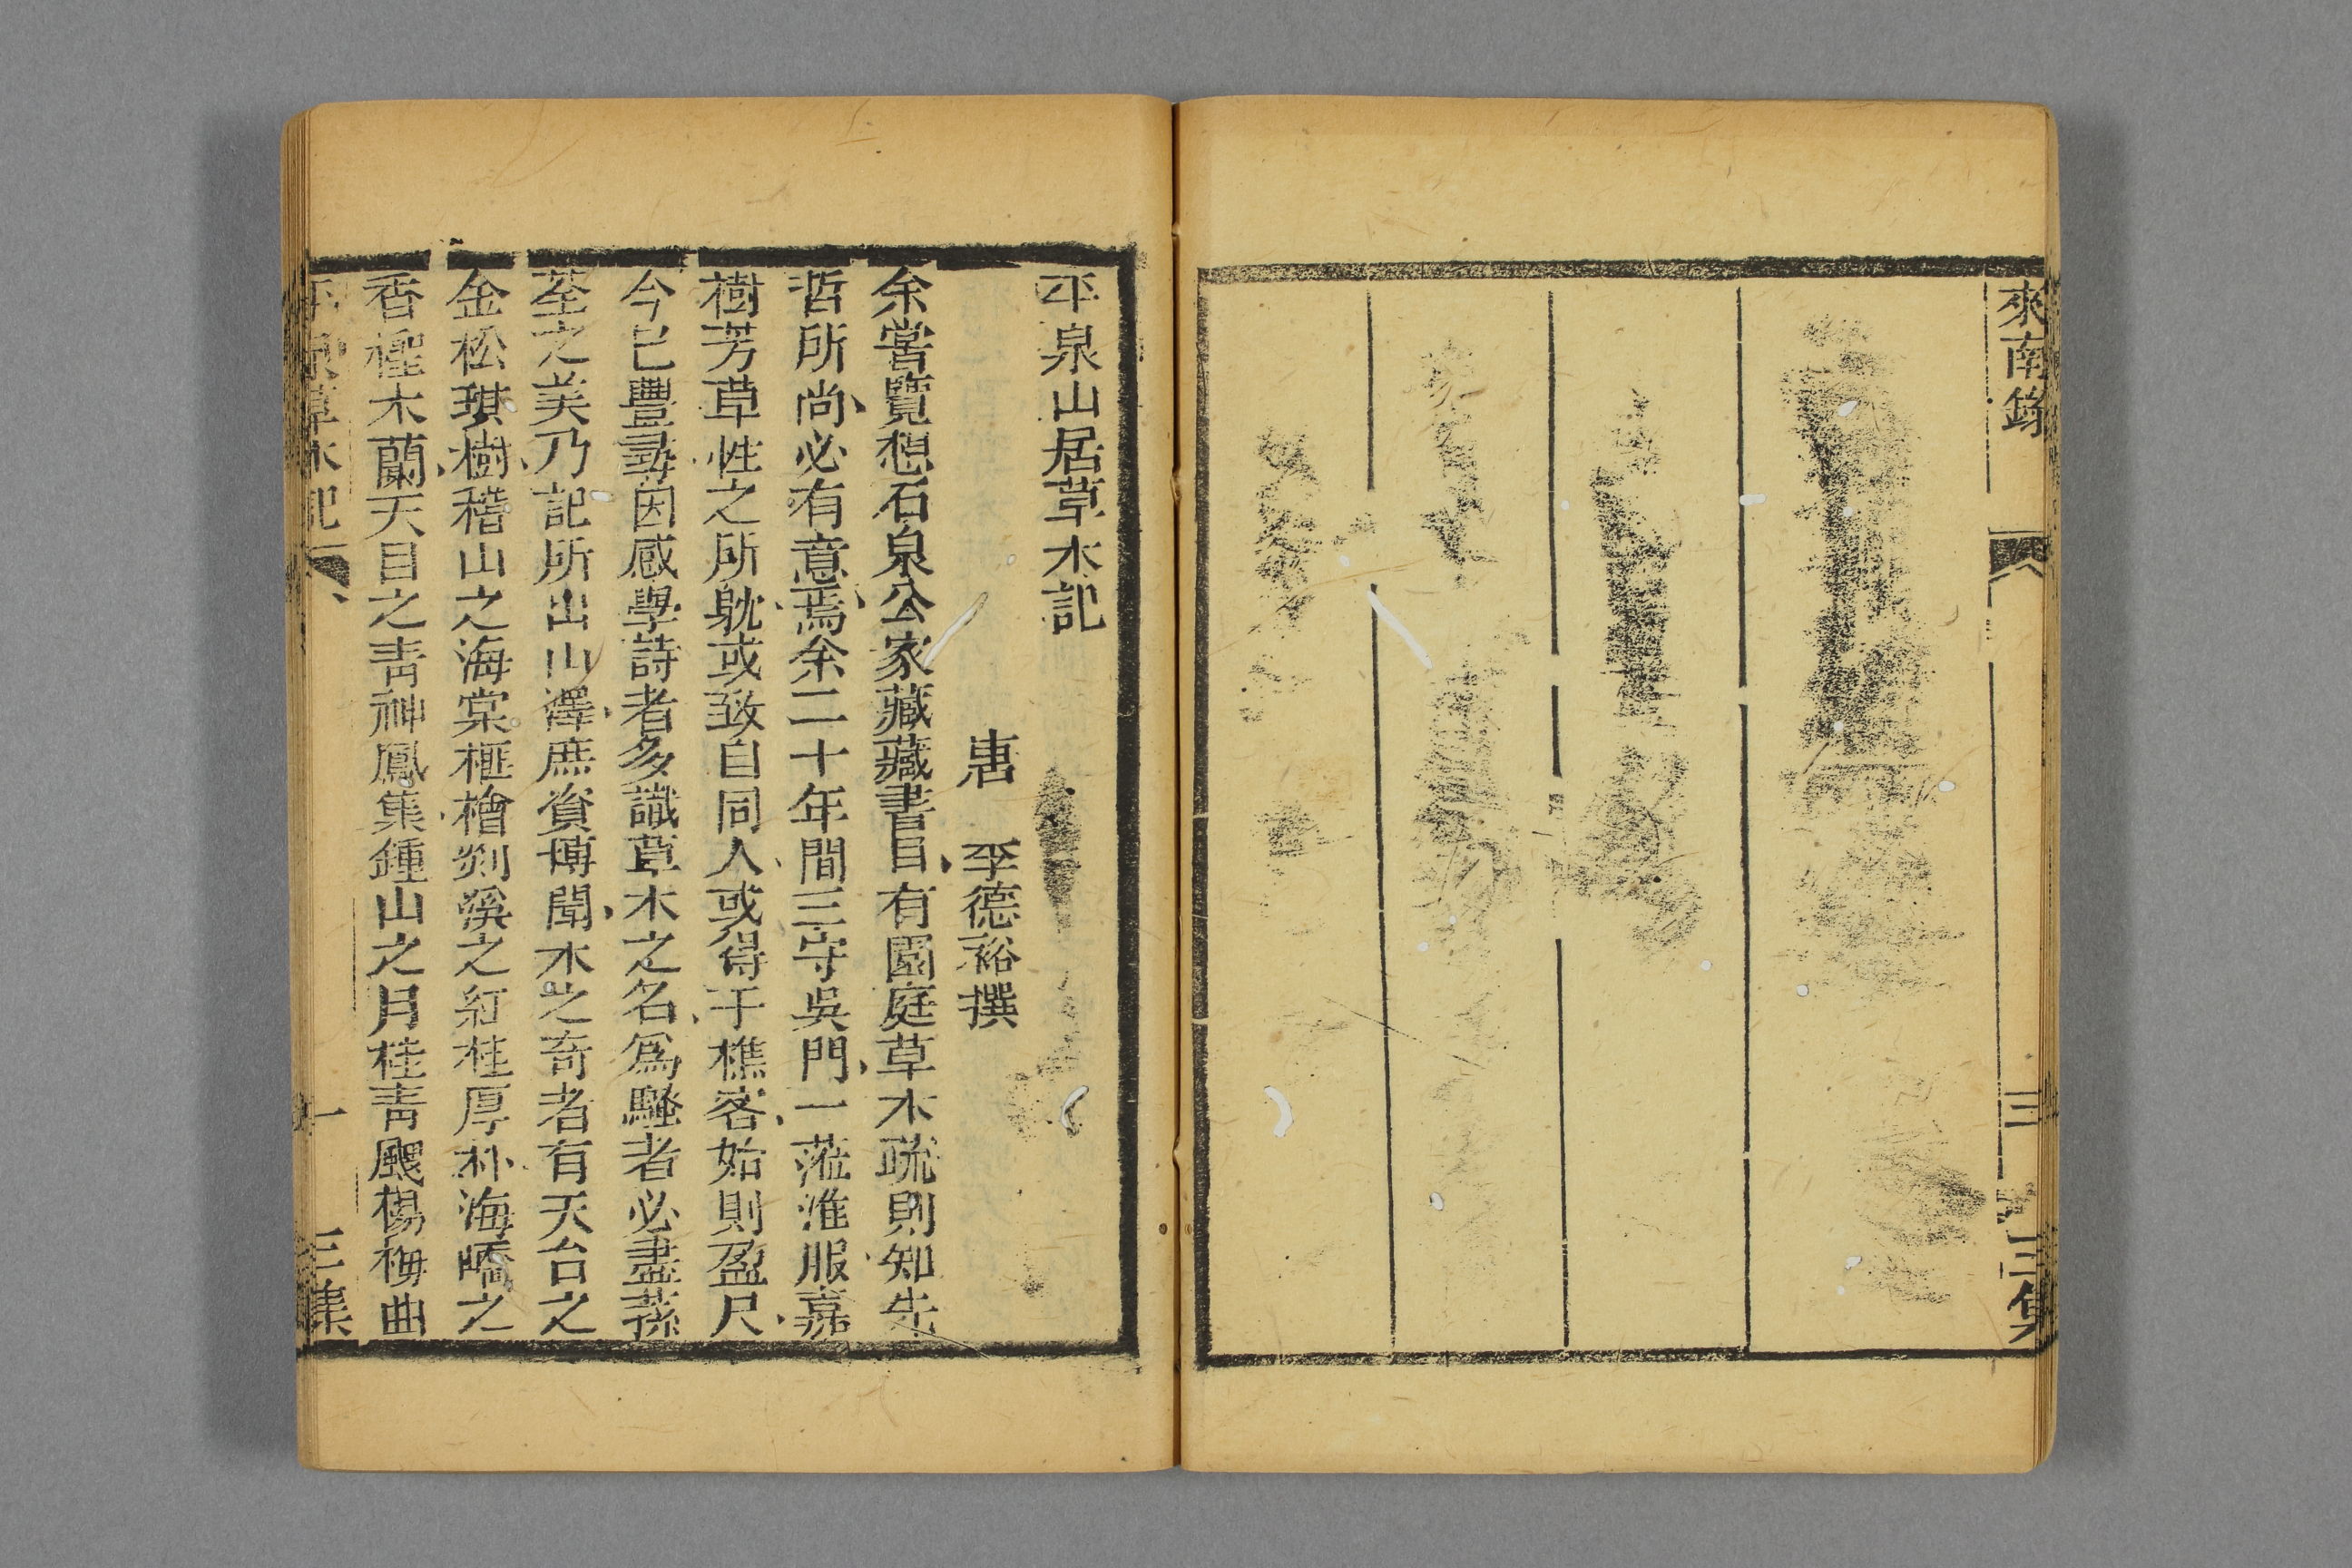 來南錄
三
三集
平泉山居草木記
唐　李德裕撰
余嘗覽想石泉公家藏藏書目有園庭草木疏則知先
哲所尚必有意焉余二十年間三守吳門一蒞淮服嘉
樹芳草性之所耽或致自同人或得于樵客始則盈尺
今已豐尋因感學詩者多識草木之名爲騷者必盡蓀
荃之美乃記所出山澤庶資博聞木之奇者有天台之
金松琪樹稽山之海棠榧檜剡溪之紅桂厚朴海嶠之
香檉木蘭天目之青神鳳集鍾山之月桂青颼楊梅曲
平泉草木記
一
三集